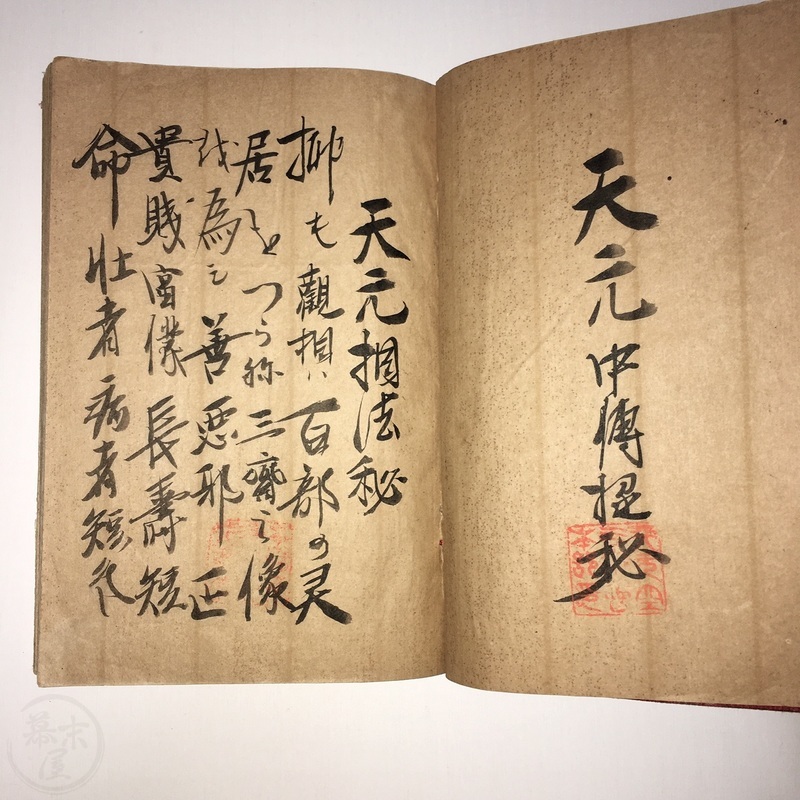 天元中傳極秘
天元相法秘
抑も觀相ハ百部の灵
居をつらね三齋之像
越為し善悪邪正
貴賤富僕長壽短
命壮者病者短氣
幕末屋